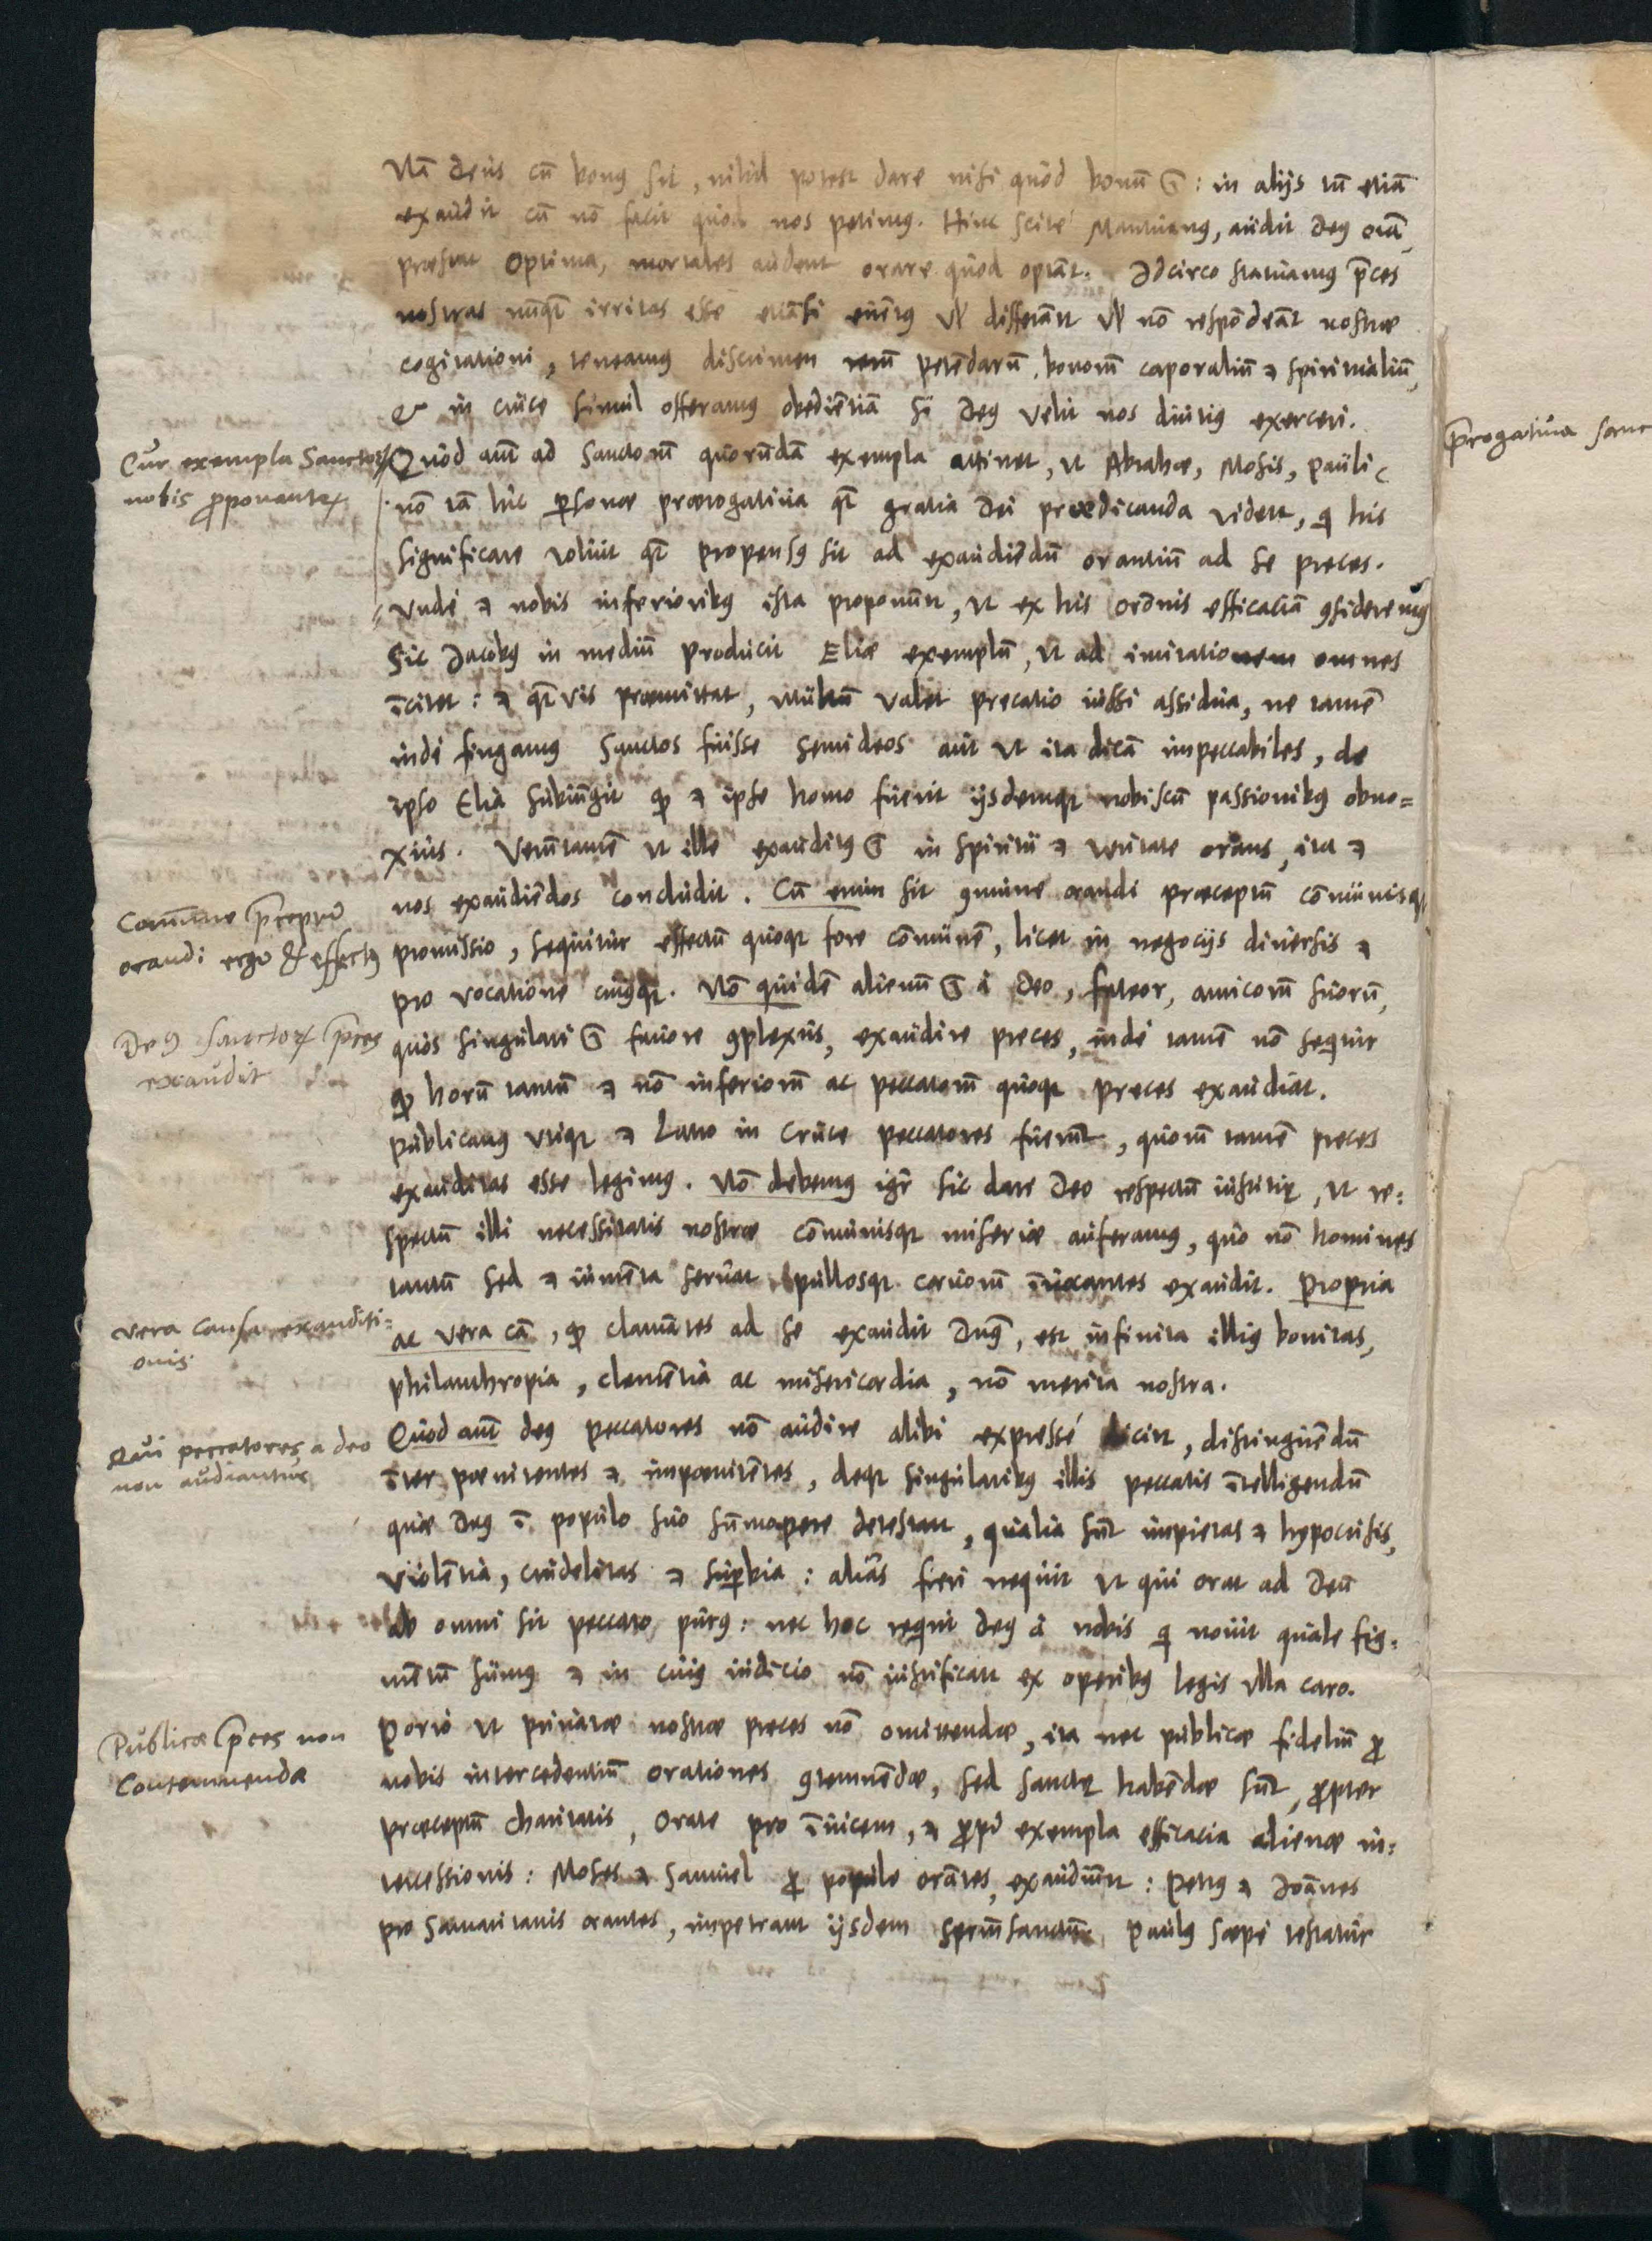 Nā deus cū bonus sit, nihil potest dare nisi quod bonū ē: in alijs tū etiā
exaudit cū nō facit quod nos petimus. Hinc scitè Mantuanus, audit deus orā
præstat optima, mortales audent orare quod optāt. Idcirco statuamus p̄ces
nostras nūq̄ irritas esse etiāsi euētus vel differāt vel nō respōdeāt nostræ
cogitationi, teneamus discrimen rerū petēdarū, bonorū corporaliū & spiritualiū,
& in cruce simul offeramus obediētiā si deus velit nos diutius exerceri.
Cur exempla Sanctorū
nobis proponantur
Quòd aūt ad sanctorū quorūdā exempla attinet, ut Abrahæ, Mosis, Pauli
nō tā hîc personæ prærogatiua q̄ gratia Dei prædicanda videtur, q̄ his
significare voluit q̄ propensus sit ad exaudiēdū orantiū ad se preces.
Vnde & nobis inferioribus ista proponūtur, ut ex his or̄onis efficaciā cōsideremus
Sic Jacobus in mediū producit Eliæ exemplū, ut ad imitationem omnes
īcitet: & q̄vis præmittat, multū valet precatio iusti assidua, ne tamē
inde fingamus Sanctos fuisse semideos aut ut ita dicā impeccabiles, de
ipso Elia subiūgit quod & ipse homo fuerit ijsdemque nobiscū passionibus obno=
xius. Verūtamē ut ille exauditus ē in spiritu & veritate orans, ita &
nos exaudiēdos concludit. Cū enim sit cōmune orandi præceptū cōmunisque
Commune p̄ceptū
orandi ergo & effectus
promissio, sequitur effectū quoque fore cōmunē, licet in negocijs diuersis &
pro vocatione cuiusque. Nō quidē alienū ē à Deo, fateor, amicorū suorū,
Deus sanctorū p̄ces
exaudit
quos singulari ē fauore cōplexus, exaudire preces, inde tamē nō sequitur
quod horū tantū & nō inferiorū ac peccatorū quoque preces exaudiat.
Publicanus utique & Latro in cruce peccatores fuerūt, quorū tamē preces
exauditas esse legimus. Nō debemus igr̄ sic dare Deo respectū iustitiæ, ut re=
spectū illi necessitatis nostræ cōmunisque miseriæ auferamus, quo nō homines
tantū sed & iumēta seruat pullosque coruorū īuocantes exaudit. Propria
vera causa exauditi=
onis.
ac vera cā, quod clamātes ad se exaudit Dn̄s, est infinita illius bonitas,
philanthropia, clemētia ac misericordia, nō merita nostra.
Qui peccatores a deo
non audiantur
Quod aūt deus peccatores nō audire alibi expressè dicitur, distinguēdū
īter pœnitentes & impœnitētes, deque singularibus illis peccatis ītelligendū
quæ Deus ī populo suo sūmopere detestatur, qualia sūt impietas & hypocrisis,
violētia, crudelitas & superbia: aliàs fieri nequit ut qui orat ad Deū
ab omni sit peccato purus: nec hoc requirit deus à nobis q̄ nouit quale fig=
mētū sumus & in cuius iudicio nō iustificatur ex operibus legis ulla caro.
Publicæ p̄ces non
Contemnendæ
Porrò ut priuatæ nostræ preces nō omittendæ, ita nec publicæ fideliū pro
nobis intercedentiū orationes cōtemnēdæ, sed sanctæ habēdæ sūt, propter
præceptū charitatis, Orate pro īuicem, & propter exempla efficacia alienæ in=
tercessionis: Moses & Samuel pro populo orātes, exaudiūtur: Petrus & Joānes
pro Samaritanis orantes, impetrant ijsdem sp̄ritū sanctū: Paulus sæpe testatur
p̄rogatiua sanc